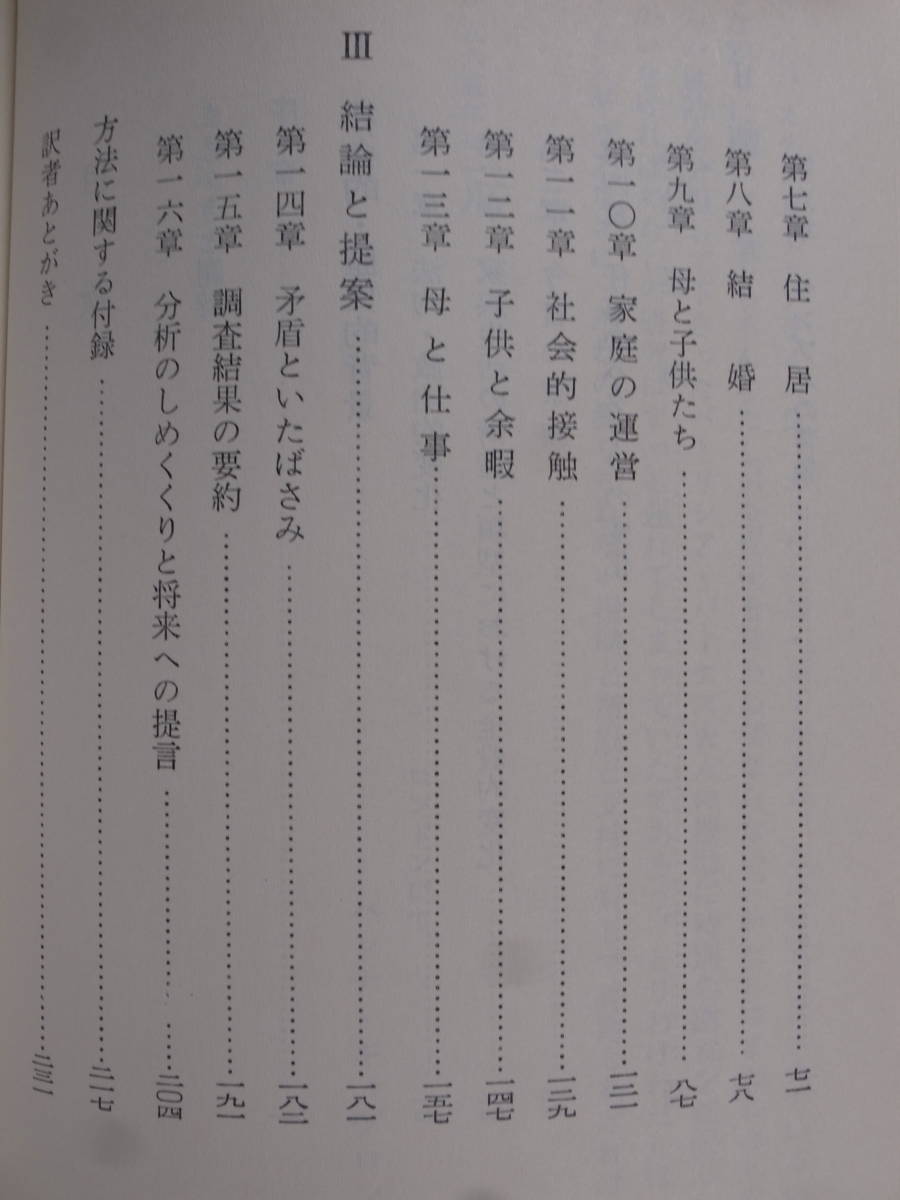 第七章　住　居……七一
第八章　結　婚……七八
第九章　母と子供たち……八七
第一〇章　家庭の運営……一二一
第一一章　社会的接触……一二九
第一二章　子供と余暇……一四七
第一三章　母と仕事……一五七
Ⅲ　結論と提案……一八一
第一四章　矛盾といたばさみ……一八二
第一五章　調査結果の要約……一九一
第一六章　分析のしめくくりと将来への提言……二〇四
方法に関する付録……二一七
訳者あとがき……二三一